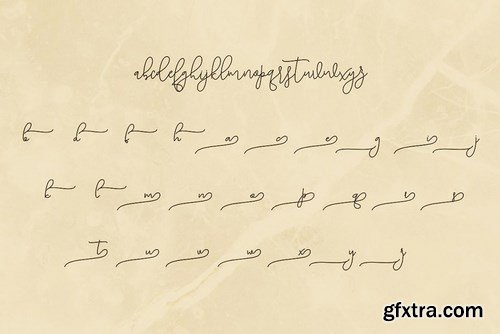 abcdefghijklmnopqrstuvwxyz
b d f h a c e g i j
k l m n o p q r s
t u v w x y z
gfxtra.com